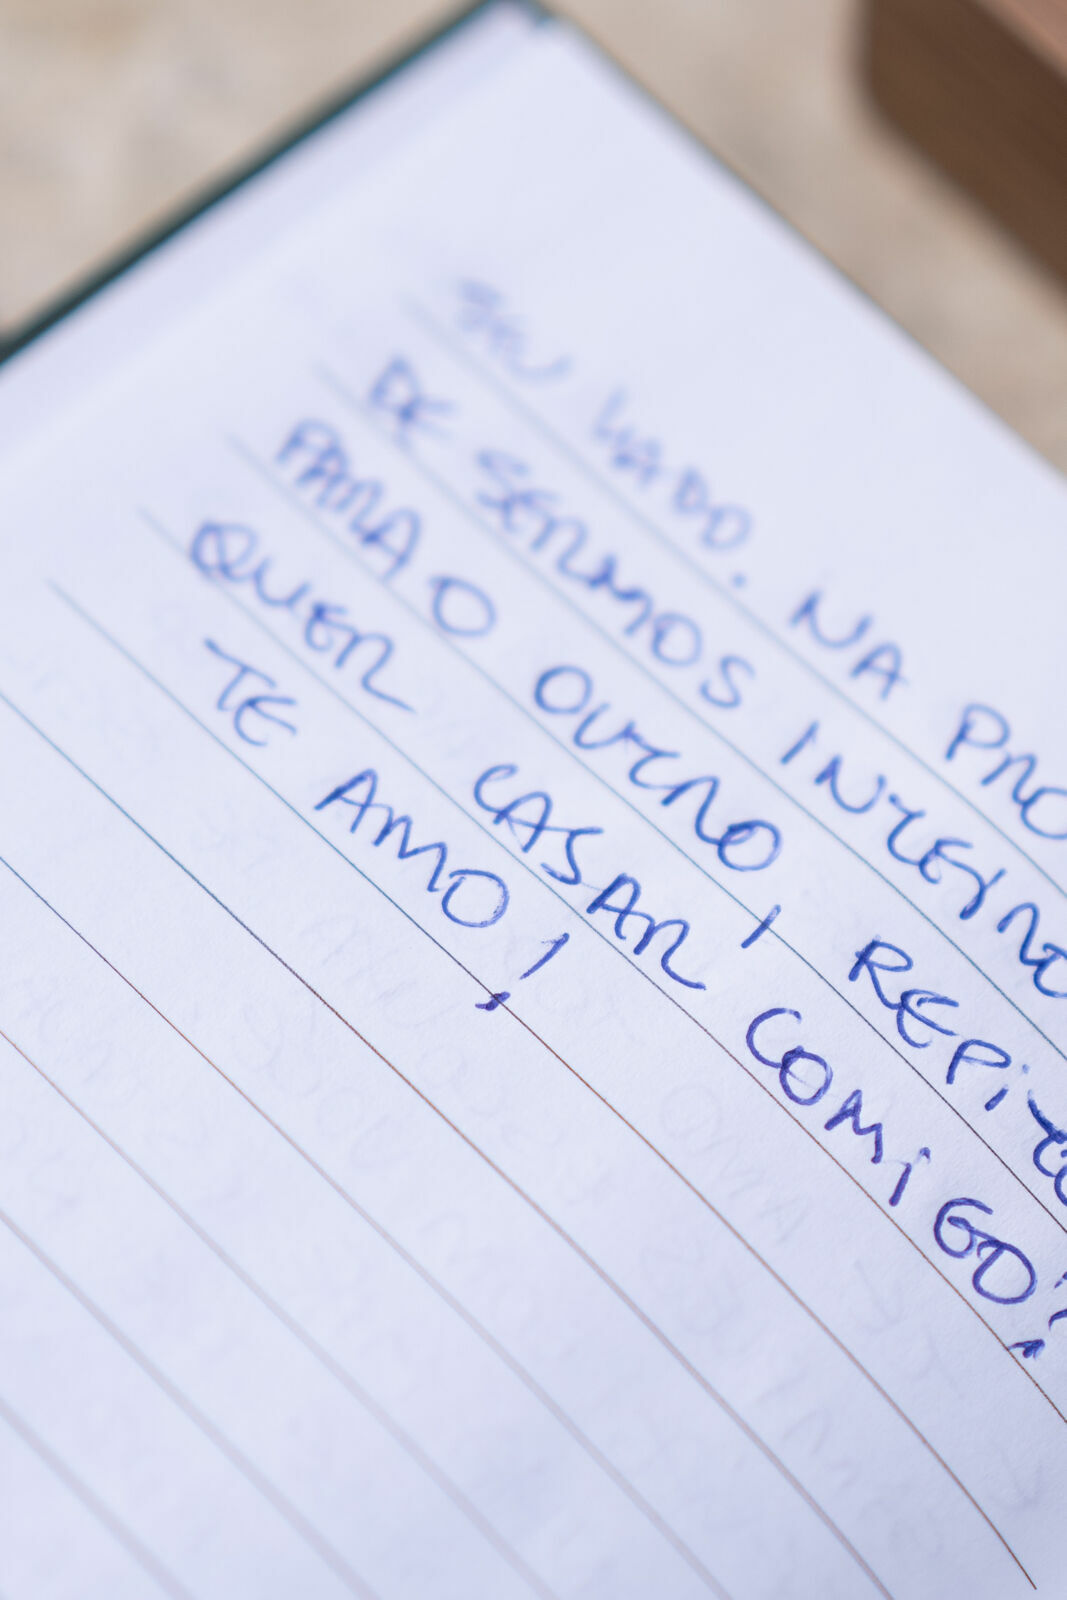 SEU LADO. NA PRO
DE SERMOS INTEIRO
PARA O OUTRO, REPITO
QUER CASAR COMIGO?
TE AMO!